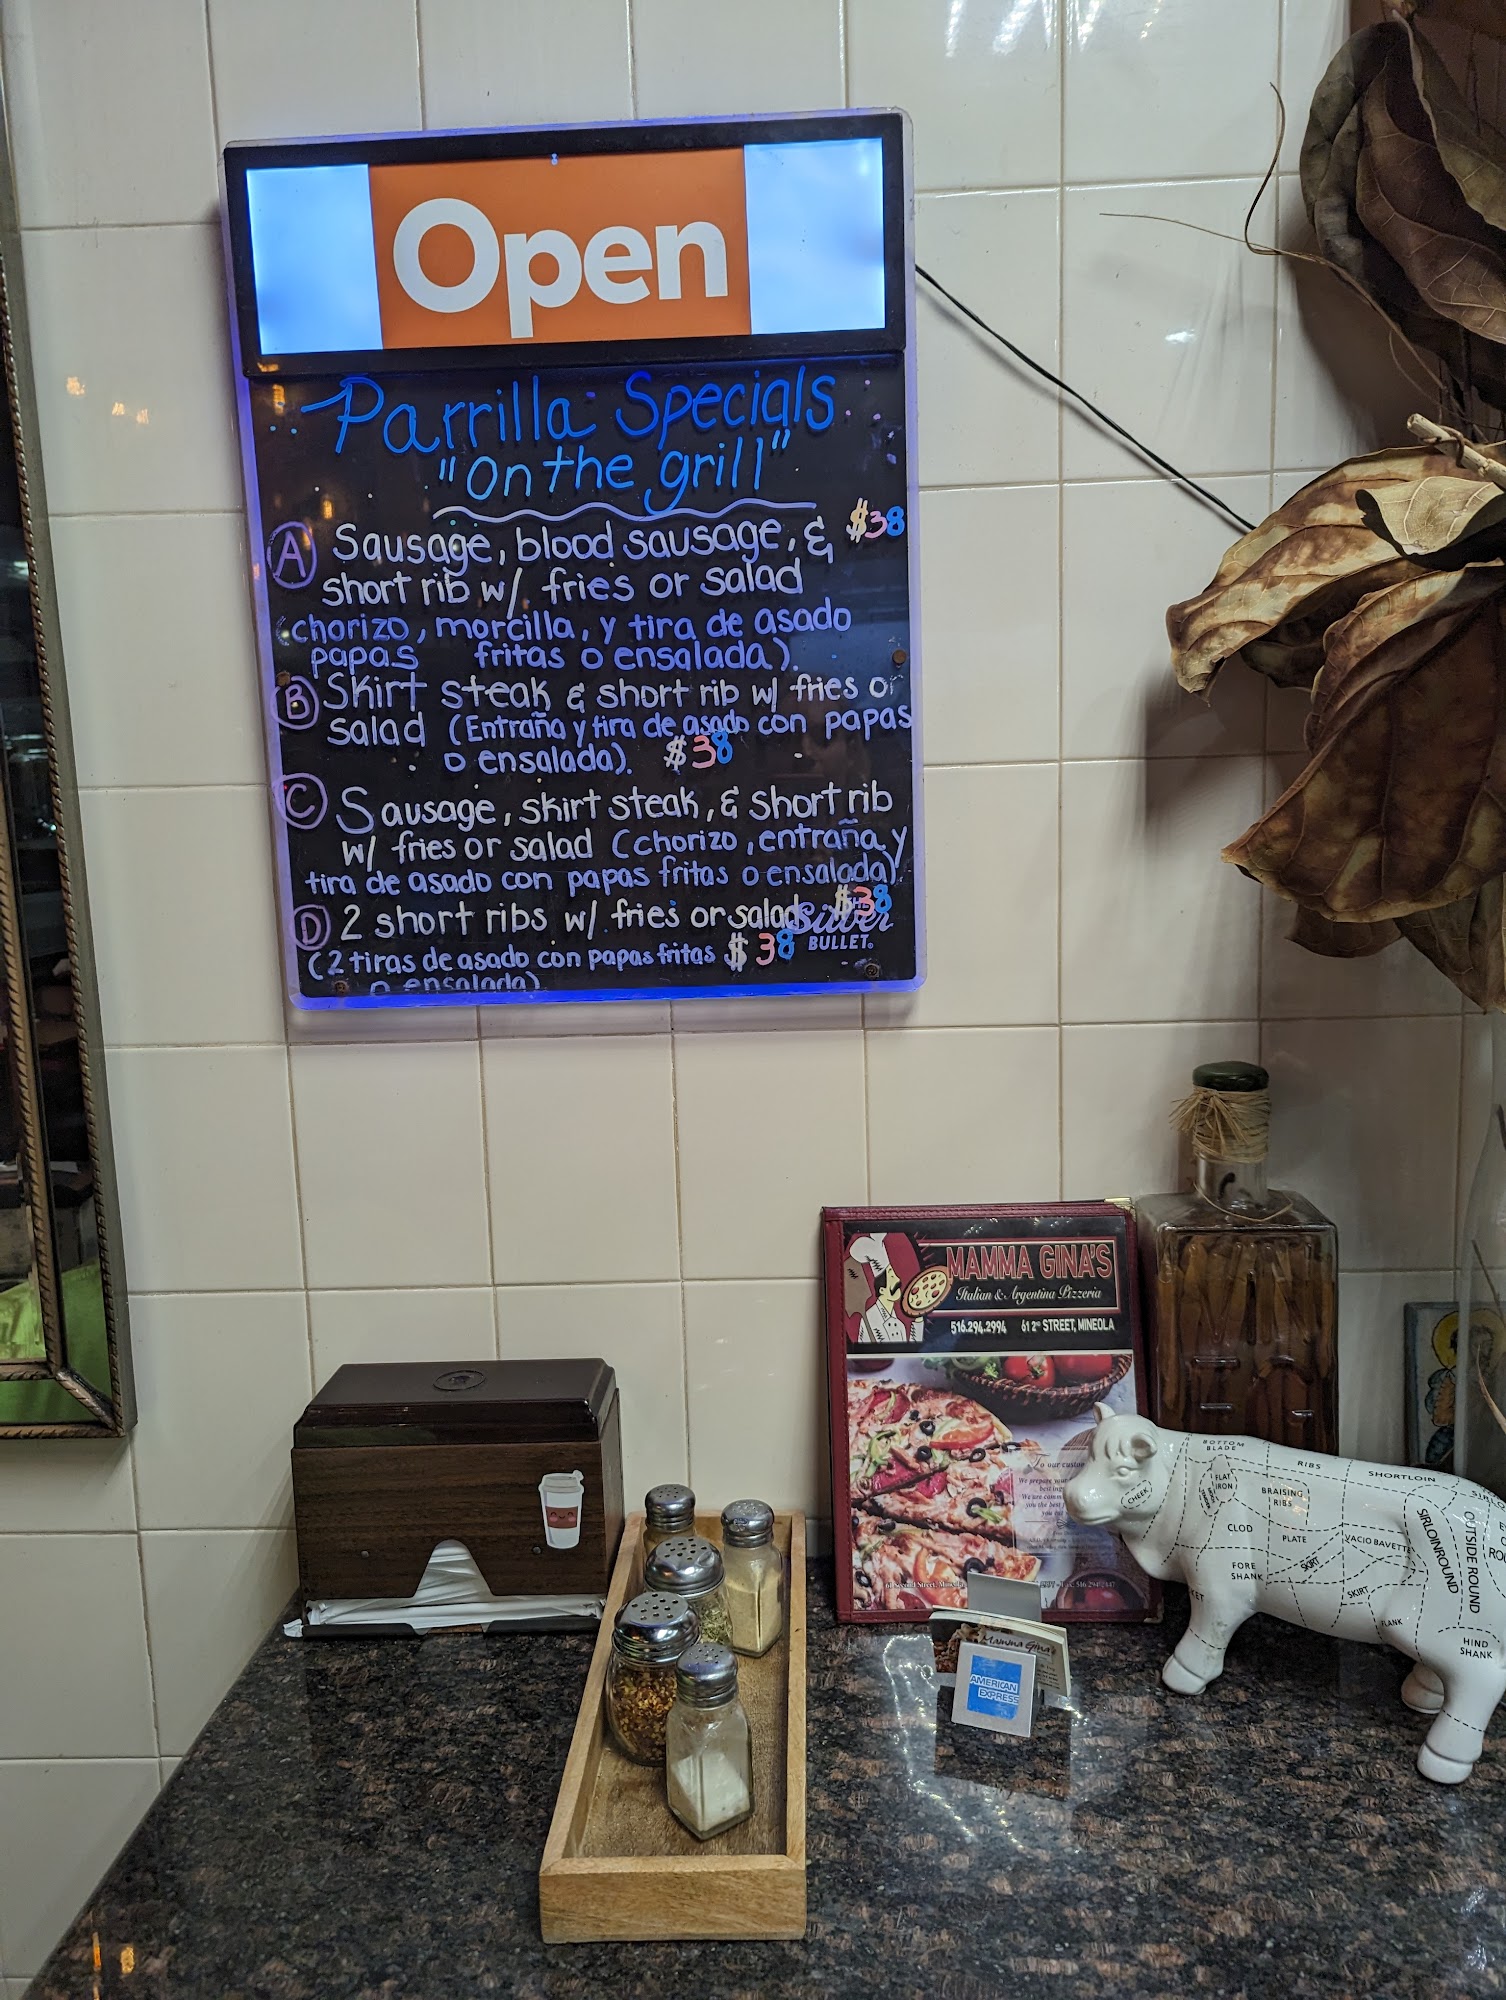 Open
Parrilla Specials
"on the grill"
A Sausage, blood sausage, & $38
short rib w/ fries or salad
(chorizo, morcilla, y tira de asado
papas fritas o ensalada).
B Skirt steak & short rib w/ fries or
salad (Entraña y tira de asado con papas
o ensalada). $38
C Sausage, skirt steak, & short rib
w/ fries or salad (chorizo, entraña y
tira de asado con papas fritas o ensalada)
$38
D 2 short ribs w/ fries or salad
Silver
BULLET
(2 tiras de asado con papas fritas $38
o ensalada)
MAMMA GINA'S
Italian & Argentina Pizzeria
516.294.2994 61 2ND STREET, MINEOLA
We prepare your
Mamma Gina's
AMERICAN
EXPRESS
BOTTOM
BLADE
RIBS
SHORTLOIN
CHEEK
FLAT
IRON
BRAISING
RIBS
CLOD
PLATE
VACIO BAVETTE
SIRLOIN ROUND
OUTSIDE ROUND
FORE
SHANK
SKIRT
SKIRT
FLANK
HIND
SHANK